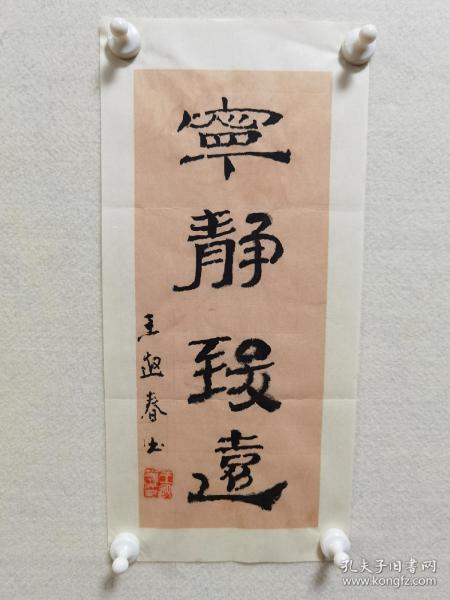 寧靜致遠
王趣春书
孔夫子旧书网
www.kongfz.com